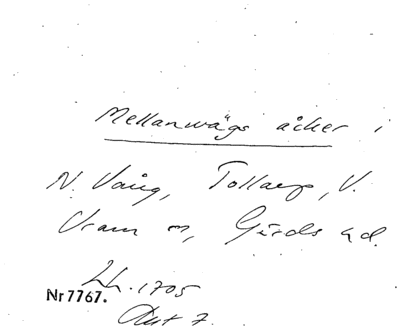 Mellanwägs åcker i
N. Vång, Tollarp, V.
Vram sn, Gärds hd.
Lh. 1705
Nr 7767.
Akt 7.